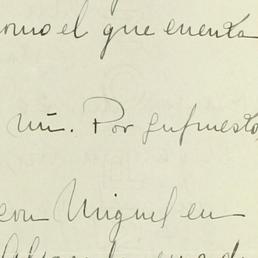 como el que cuenta
mí. Por supuesto,
con Miguel en